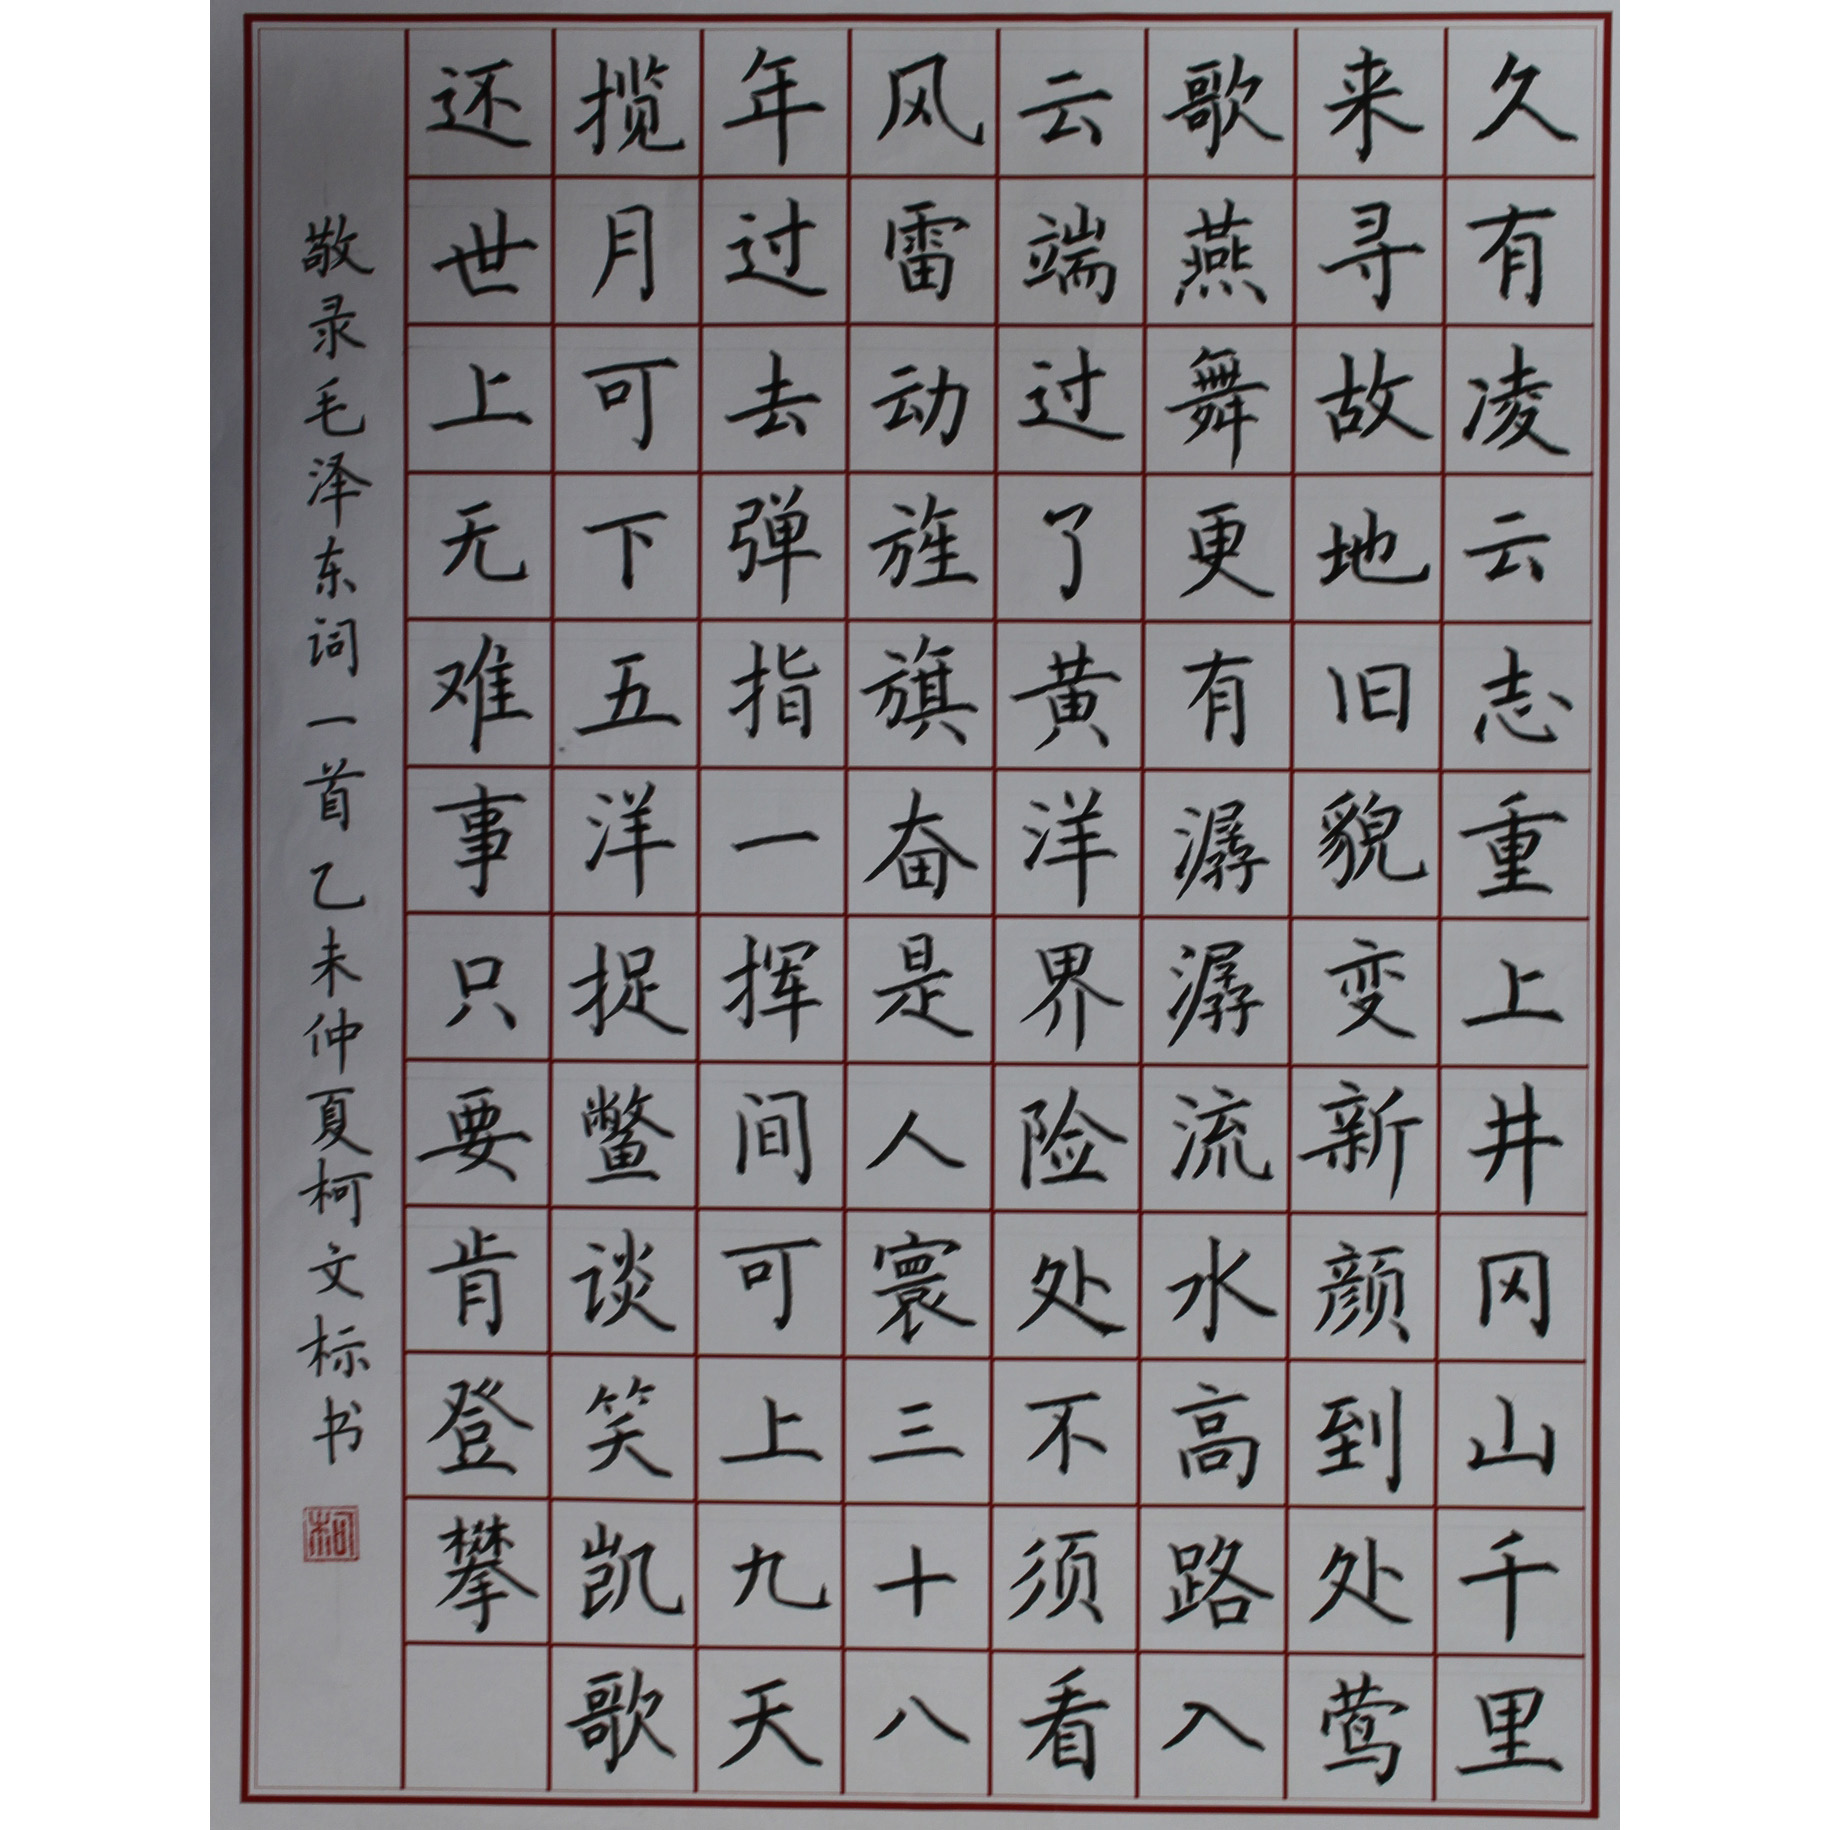 久有凌云志重上井冈山千里
来寻故地旧貌变新颜到处莺
歌燕舞更有潺潺流水高路入
云端过了黄洋界险处不须看
风雷动旌旗奋是人寰三十八
年过去弹指一挥间可上九天
揽月可下五洋捉鳖谈笑凯歌
还世上无难事只要肯登攀
敬录毛泽东词一首乙未仲夏柯文标书
柯